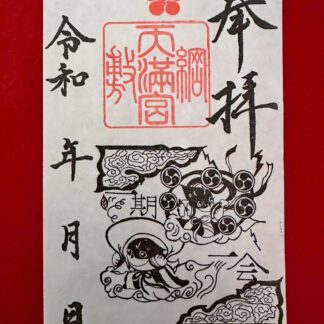 奉拝
綱
天満宮
敷
一期
一会
令和 年 月 日